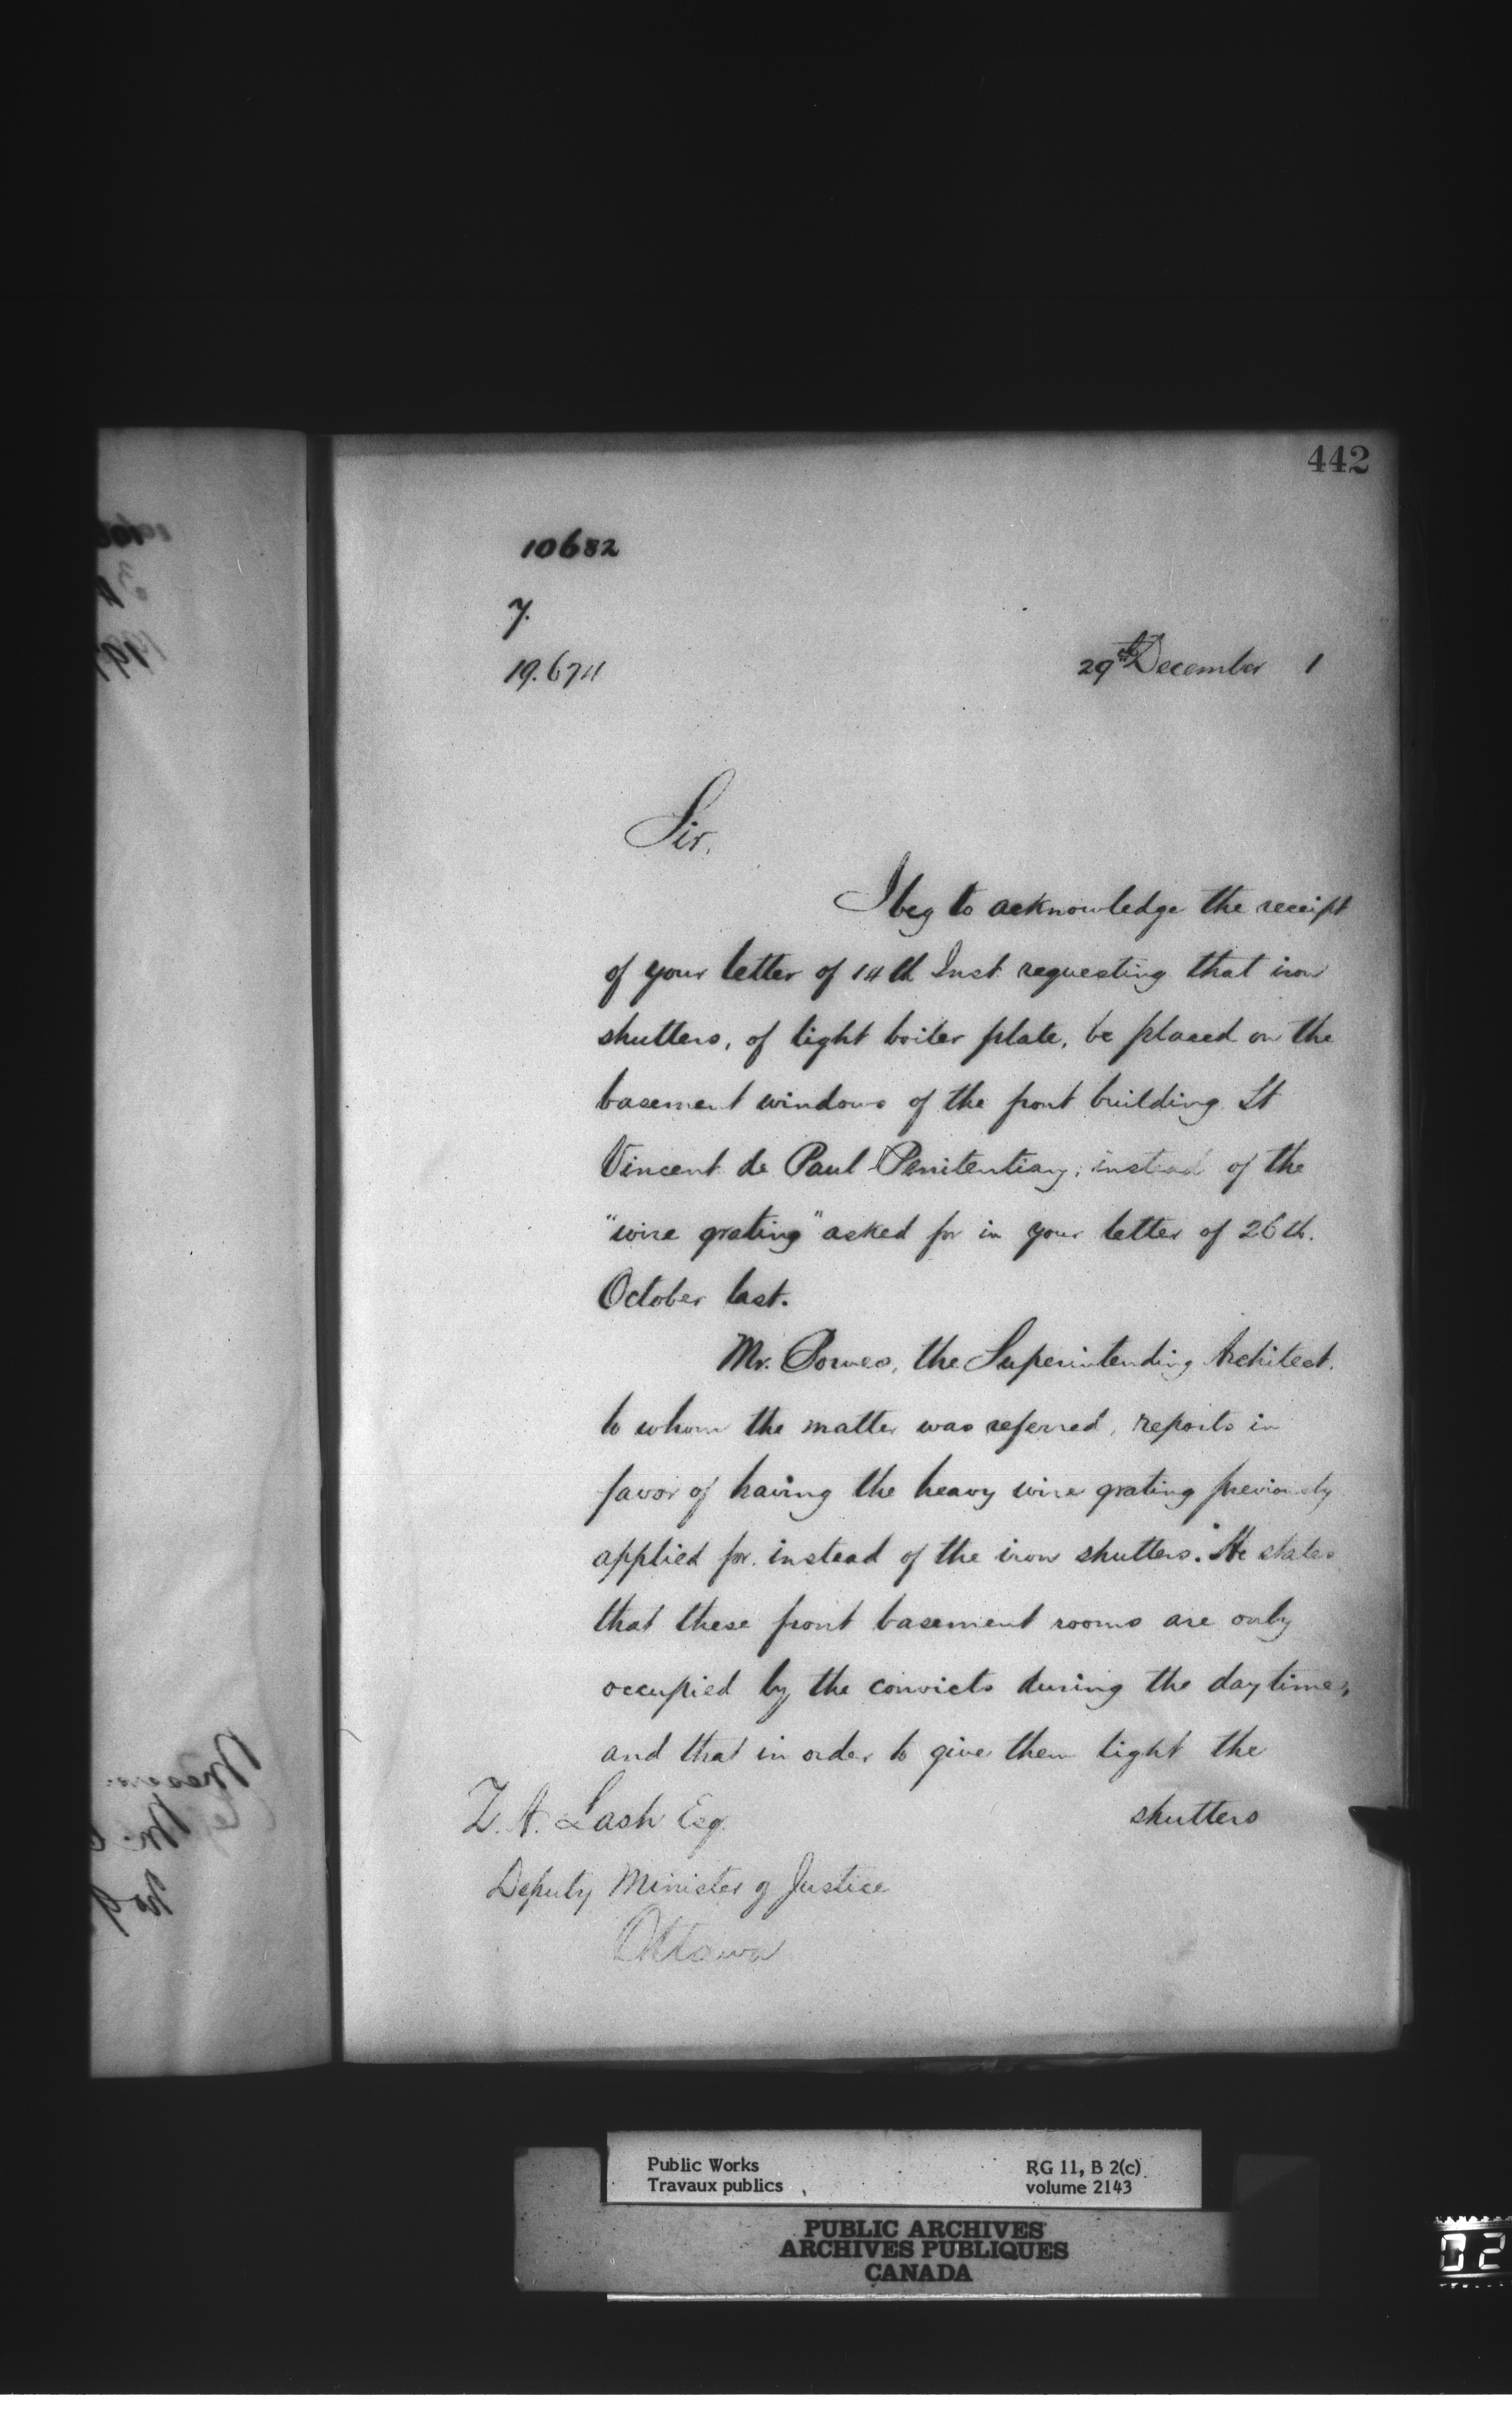 442
10682
7.
19.674
29th December 1
Sir,
I beg to acknowledge the receipt
of your letter of 14th Inst requesting that iron
shutters, of light boiler plate, be placed on the
basement windows of the front building St
Vincent de Paul Penitentiary, instead of the
"wire grating" asked for in your letter of 26th.
October last.
Mr. Bowes, the Superintending Architect.
to whom the matter was referred, reports in
favor of having the heavy wire grating previously
applied for instead of the iron shutters. He states
that these front basement rooms are only
occupied by the convicts during the day time,
and that in order to give them light the
shutters
Z. A. Lash Esq.
Deputy Minister of Justice
Ottawa
Public Works
Travaux publics
RG 11, B 2(c)
volume 2143
PUBLIC ARCHIVES
ARCHIVES PUBLIQUES
CANADA
02